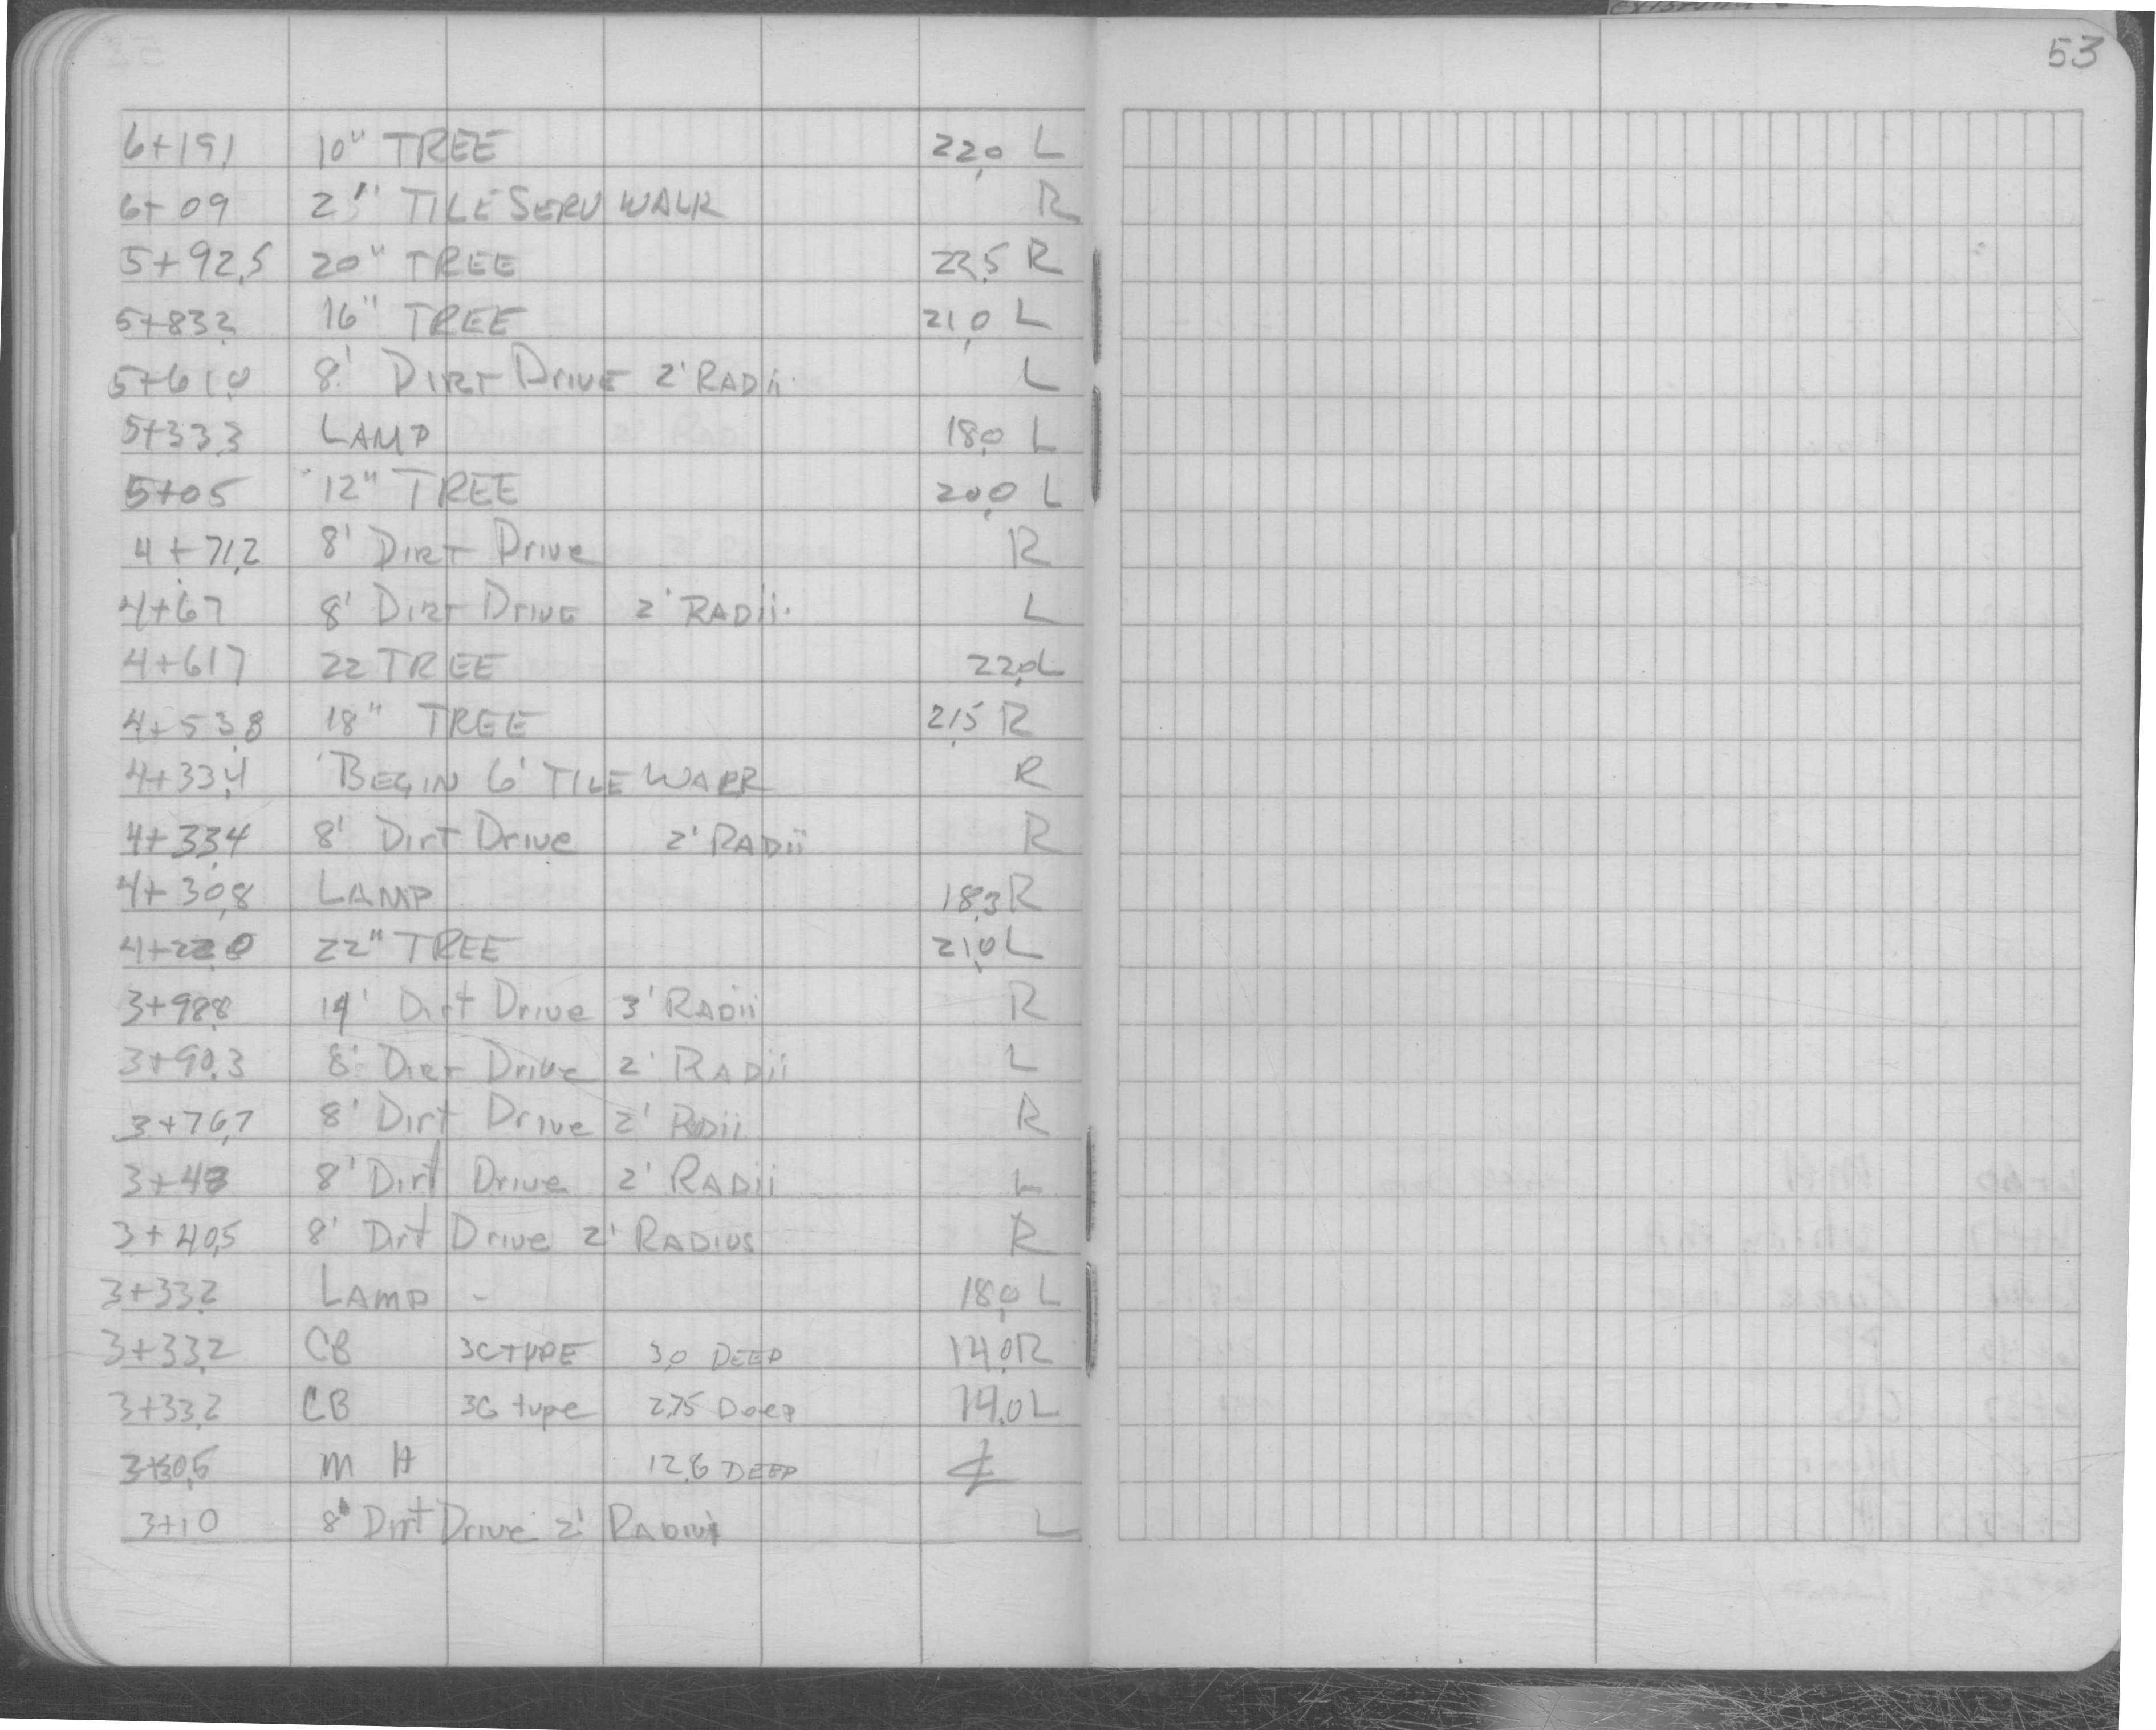 53
6+19.1 10" TREE 22.0 L
6+09 2" TILE SERV WALK R
5+92.5 20" TREE 22.5 R
5+83.2 16" TREE 21.0 L
5+61.0 8' DIRT DRIVE 2' RADii L
5+33.3 LAMP 18.0 L
5+05 12" TREE 20.0 L
4+71.2 8' DIRT Drive R
4+67 8' DIRT DRIVE 2' RADii. L
4+617 22 TREE 22.0 L
4+53.8 18" TREE 21.5 R
4+33.4 BEGIN 6' TILE WALK R
4+33.4 8' Dirt Drive 2' RADii R
4+30.8 LAMP 18.3 R
4+22.0 22" TREE 21.0 L
3+98.8 14' Dirt Drive 3' RADii R
3+90.3 8' Dirt Drive 2' RADii L
3+76.7 8' Dirt Drive 2' Radii R
3+43 8' Dirt Drive 2' RADii L
3+40.5 8' Dirt Drive 2' RADIUS R
3+33.2 LAMP - 18.0 L
3+33.2 CB 3C TYPE 3.0 DEEP 14.0 R
3+33.2 CB 3G type 2.75 Deep 14.0 L
3+30.5 M H 12.8 DEEP ℄
3+10 8' Dirt Drive 2' L